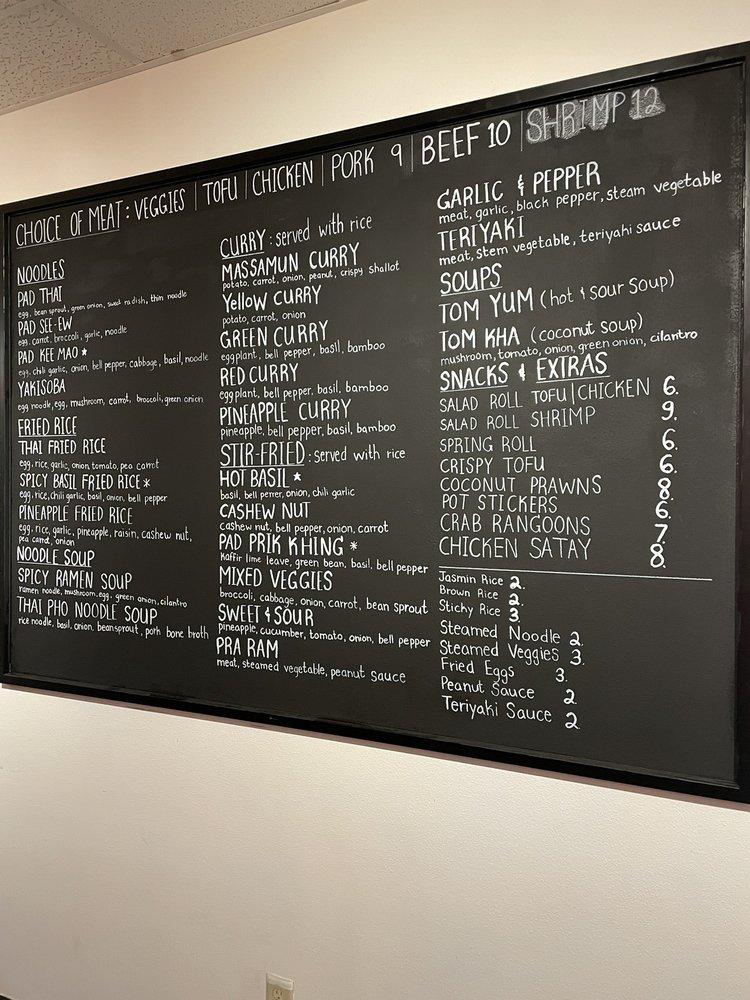 CHOICE OF MEAT: VEGGIES | TOFU | CHICKEN | PORK 9 | BEEF 10 | SHRIMP 12
NOODLES
PAD THAI
egg, bean sprout, green onion, sweet radish, thin noodle
PAD SEE-EW
egg, carrot, broccoli, garlic, noodle
PAD KEE MAO *
egg, chili garlic, onion, bell pepper, cabbage, basil, noodle
YAKISOBA
egg noodle, egg, mushroom, carrot, broccoli, green onion
FRIED RICE
THAI FRIED RICE
egg, rice, garlic, onion, tomato, pea carrot
SPICY BASIL FRIED RICE *
egg, rice, chili garlic, basil, onion, bell pepper
PINEAPPLE FRIED RICE
egg, rice, garlic, pineapple, raisin, cashew nut,
pea carrot, onion
NOODLE SOUP
SPICY RAMEN SOUP
ramen noodle, mushroom, egg, green onion, cilantro
THAI PHO NOODLE SOUP
rice noodle, basil, onion, beansprout, pork bone broth
CURRY: served with rice
MASSAMUN CURRY
potato, carrot, onion, peanut, crispy shallot
YelloW CURRY
potato, carrot, onion
GREEN CURRY
eggplant, bell pepper, basil, bamboo
RED CURRY
eggplant, bell pepper, basil, bamboo
PINEAPPLE CURRY
pineapple, bell pepper, basil, bamboo
STIR-FRIED: served with rice
HOT BASIL *
basil, bell perrer, onion, chili garlic
CASHEW NUT
cashew nut, bell pepper, onion, carrot
PAD PRIK KHING *
kaffir lime leave, green bean, basil, bell pepper
MIXED VEGGIES
broccoli, cabbage, onion, carrot, bean sprout
SWEET & SOUR
pineapple, cucumber, tomato, onion, bell pepper
PRA RAM
meat, steamed vegetable, peanut sauce
GARLIC & PEPPER
meat, garlic, black pepper, steam vegetable
TERIYAKI
meat, stem vegetable, teriyaki sauce
SOUPS
TOM YUM (hot & sour Soup)
TOM KHA (coconut soup)
mushroom, tomato, onion, green onion, cilantro
SNACKS & EXTRAS
SALAD ROLL TOFU | CHICKEN 6.
SALAD ROLL SHRIMP 9.
SPRING ROLL 6.
CRISPY TOFU 6.
COCONUT PRAWNS 8.
POT STICKERS 6.
CRAB RANGOONS 7.
CHICKEN SATAY 8.
Jasmin Rice 2.
Brown Rice 2.
Stichy Rice 3.
Steamed Noodle 2
Steamed Veggies 3.
Fried Eggs 3.
Peanut Sauce 2.
Teriyaki Sauce 2.